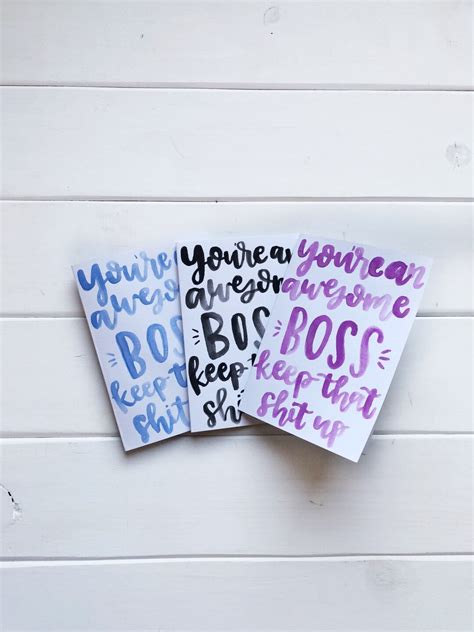 you're
awesome
BOSS
keep tha
shit
you're an
awesome
BOSS
keep tha
shit
you're an
awesome
BOSS
keep that
shit up